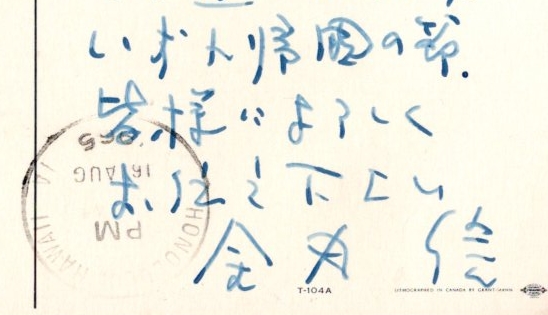 いずれ帰国の節、
皆様によろしく
お伝え下さい
金丸 信
HAWAII
PM
16 AUG
1965
T-104A
LITHOGRAPHED IN CANADA BY GRANT-MANN